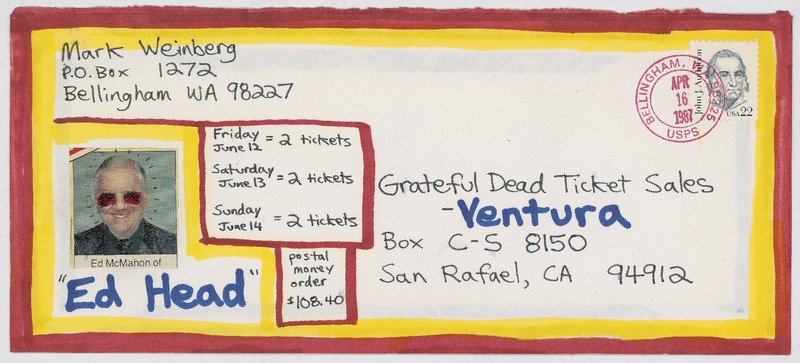 Mark Weinberg
P.O. Box 1272
Bellingham WA 98227
BELLINGHAM, WA 98225
APR
16
1987
USPS
John J. Audubon
USA 22
Friday
June 12 = 2 tickets
Saturday
June 13 = 2 tickets
Sunday
June 14 = 2 tickets
postal
money
order
$108.40
Ed McMahon of
"Ed Head"
Grateful Dead Ticket Sales
-Ventura
Box C-S 8150
San Rafael, CA 94912